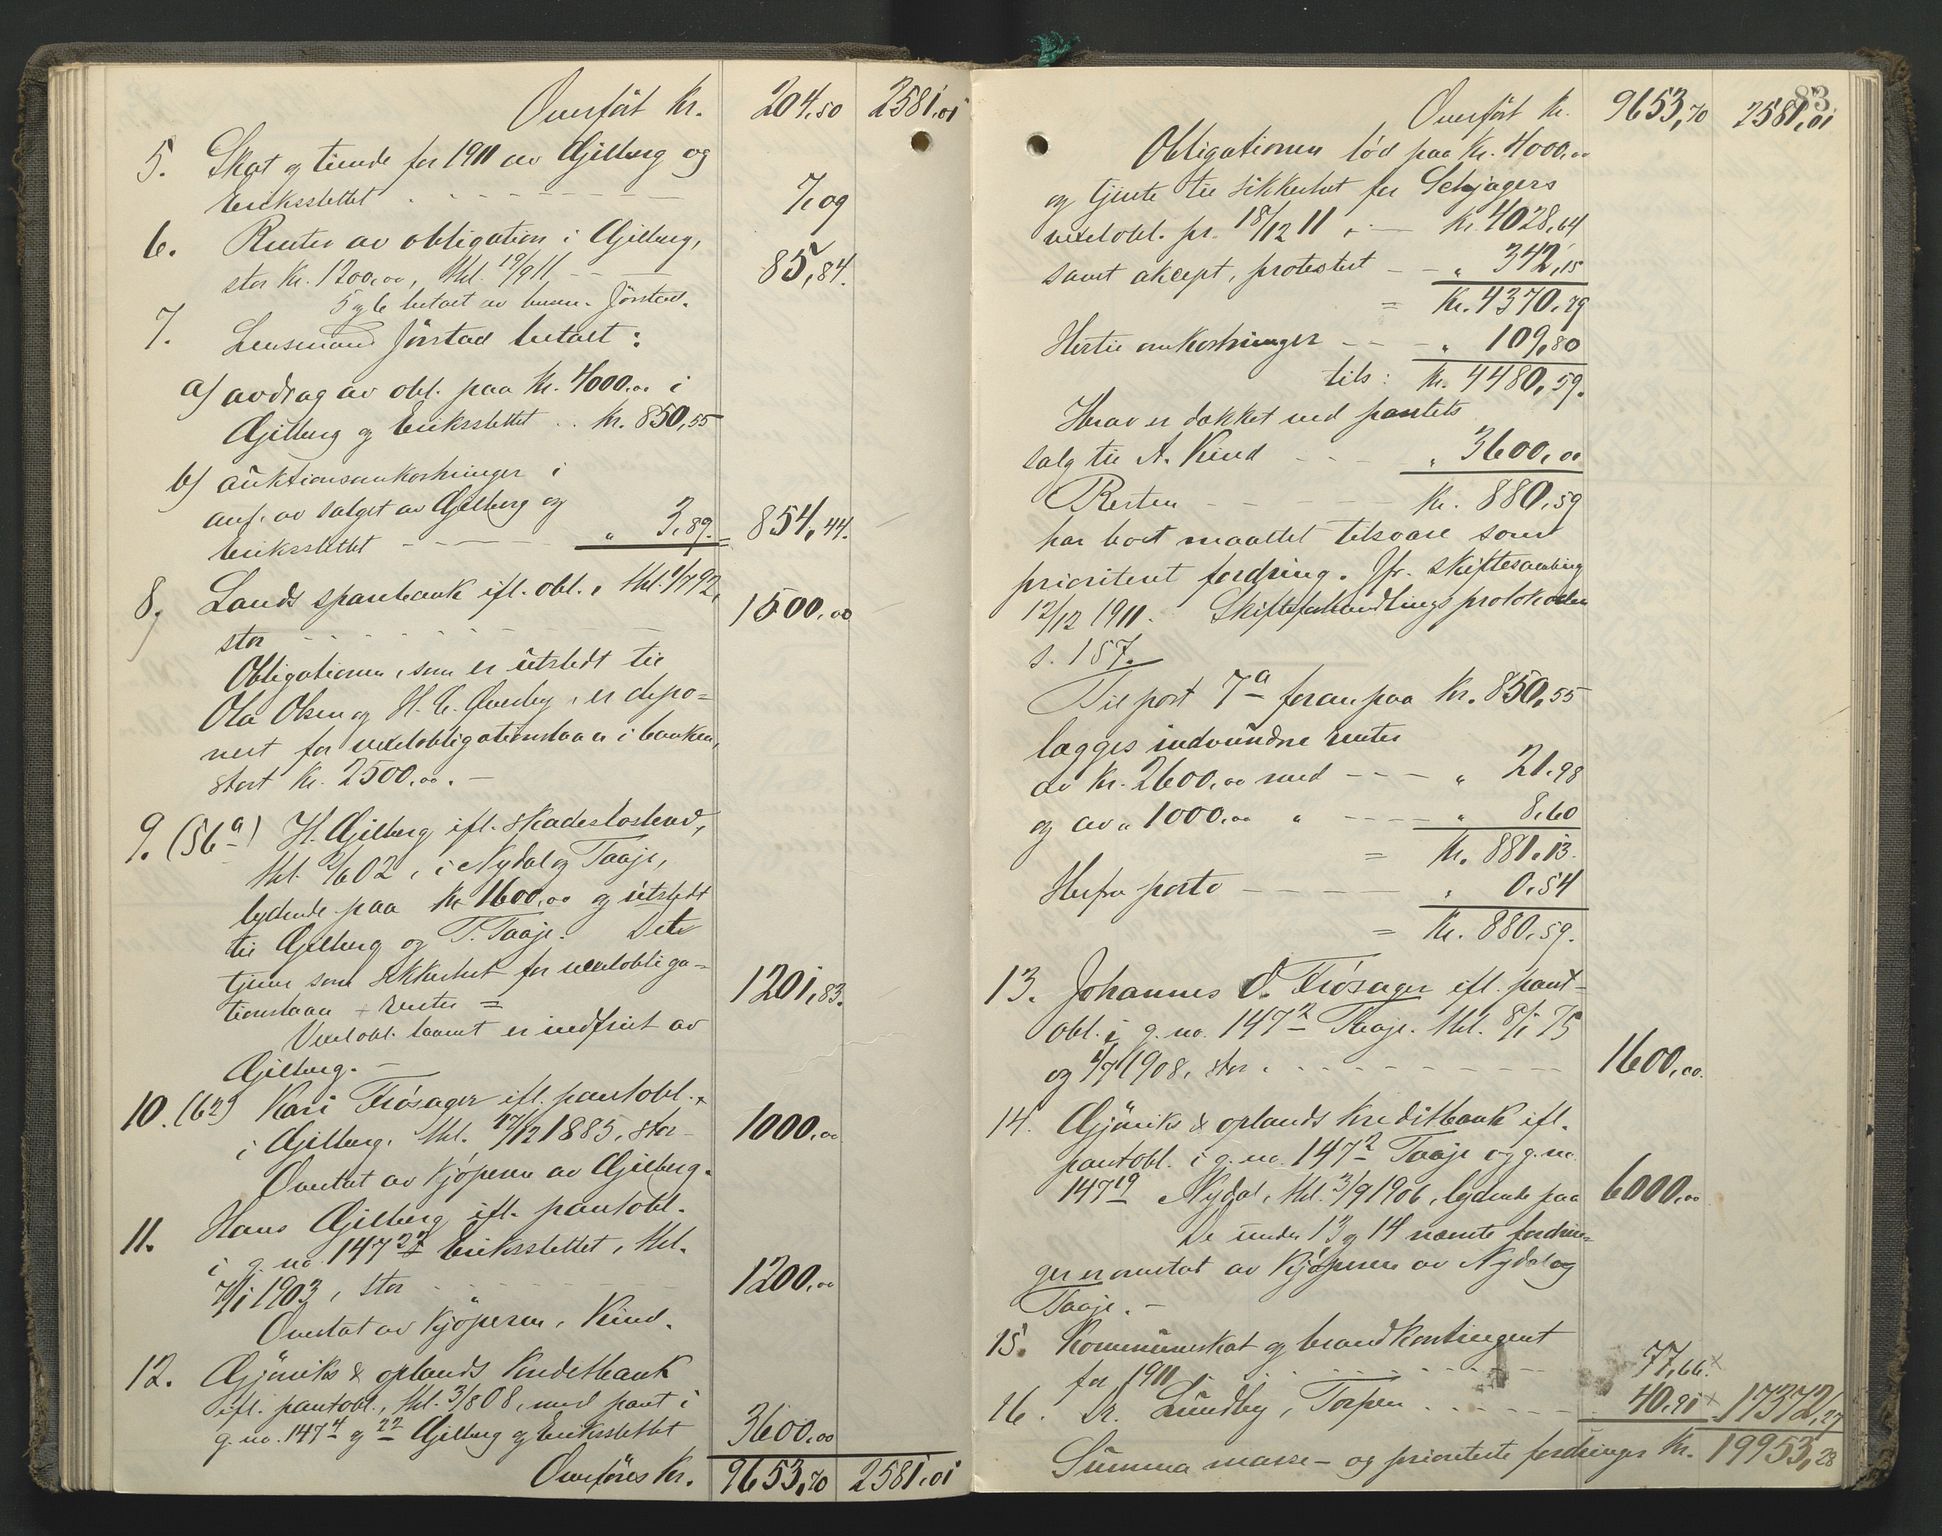 Overført Kr. 204,50 2581,01
5. Skat og tiende for 1911 av Gjilberg og
Eriksslettet 7,09
6. Renter av obligation i Gjilberg,
stor Kr. 1200,00, thl. 19/9 11 85,84.
5 og 6 betalt av lensm. Jørstad.
7. Lensmand Jørstad betalt:
a) avdrag av obl. paa Kr. 4000.00 i
Gjilberg og Eriksslettet .. Kr. 850,55
b) auktionsomkostninger i
anl. av salget av Gjilberg og
Eriksslettet " 3,89. = 854,44.
8. Lands sparebank ifl. obl., thl. 1/7 92,
stor 1500,00
Obligationen, som er utstedt til
Ola Olsen og H. C. Qverby, er depo-
nert for vexelobligationslaan i banken,
stort Kr. 2500,00. –
9. (56a) H. Gjilberg ifl. skadesløsbrev,
thl. 2/6 02, i Nydal og Taaje,
lydende paa Kr 1600,00 og utstedt
til Gjilberg og T. Taaje. Dette
tjener som sikkerhet for vexelobliga-
tionslaan + renter = 1201,83.
Vexelobl. laanet er indfriet av
Gjilberg. –
10. (62) Kari Frøsager ifl. pantobl.
i Gjilberg, thl. 17/12 1885, stor 1000,00
Overtat av kjøperen av Gjilberg.
11. Hans Gjilberg ifl. pantobl.
i g. no. 147 22 Eriksslettet, thl.
7/1 1903, stor 1200,00
Overtat av kjøperen, Kind.
12. Gjøviks & oplands Kreditbank
ifl. pantobl., thl. 3/8 08, med pant i
g. no. 147 4 og 22 Gjilberg og Eriksslettet 3600,00
Overføres Kr. 9653,70 2581,01
83.
Overført Kr. 9653,70 2581,01
Obligationen lød paa Kr. 4000,00
og tjente til sikkerhet for Schjagers
vexelobl. pr. 18/12 11 Kr. 4028,64
samt aksept, protestert " 342,15
= Kr. 4370,79
Hertil omkostninger " 109,80
tils: Kr. 4480,59.
Herav er dækket ved pantets
salg til A. Kind " 3600,00
Resten Kr. 880,59
har boet maattet tilsvare som
prioritert fordring. Jfr. skiftesamling
12/12 1911. Skifteforhandlingsprotokollen
s. 157.
Til post 7a foran paa Kr. 850,55
lægges indvundne renter
av Kr. 2600,00 med " 21,98
og av " 1000,00 " " 8,60
= Kr. 881,13.
Herfra porto " 0,54
= Kr. 880,59.
13. Johannes O. Frøsager ifl. pant-
obl. i g. no. 147 2 Taaje. thl. 8/1 75
og 1/7 1908, stor 1600,00.
14. Gjøviks & oplands Kreditbank ifl.
pantobl. i g. no. 147 2 Taaje og g. no.
147 19 Nydal, thl. 3/9 1906, lydende paa 6000,00
De under 13 og 14 nævnte fordrin-
ger er overtat av kjøperen av Nydal og
Taaje. –
15. Kommuneskat og brandkontingent
for 1911 77,66. x
16. Dr. Lundby, Torpen 40,91 x 17372,27
Summa masse- og prioriterte fordringer Kr. 19953,28